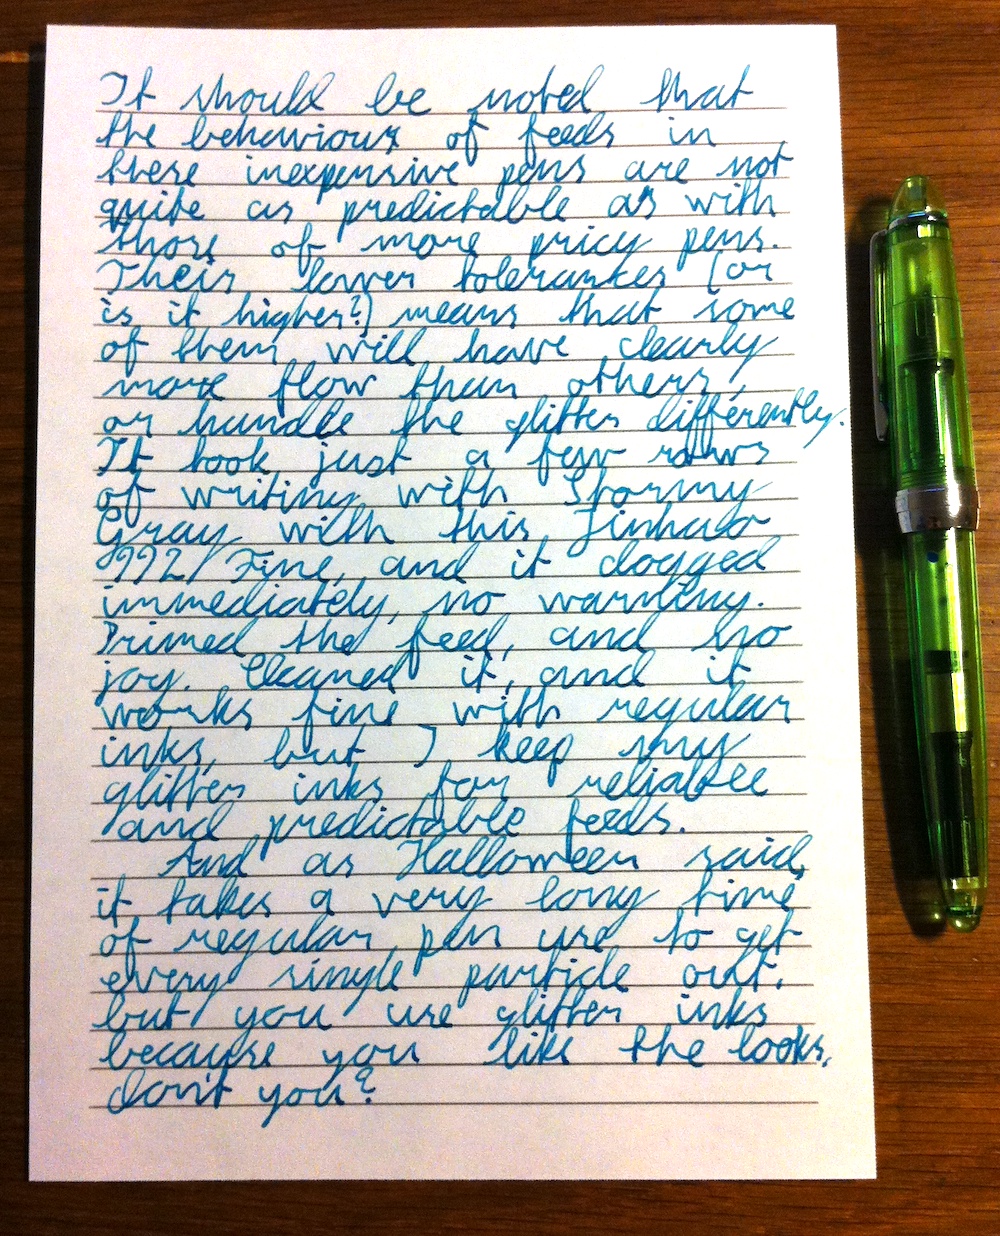 It should be noted that
the behaviour of feeds in
these inexpensive pens are not
quite as predictable as with
those of more pricy pens.
Their lower tolerances (or
is it higher?) means that some
of them will have clearly
more flow than others,
or handle the glitter differently.
It took just a few rows
of writing with Stormy
Gray with this Jinhao
992/Fine, and it clogged
immediately, no warning.
Primed the feed, and no
joy. Cleaned it, and it
works fine with regular
inks, but I keep my
glitter inks for reliable
and predictable feeds.
And as Halloween said,
it takes a very long time
of regular pen use to get
every single particle out.
but you use glitter inks
because you like the looks,
don't you?